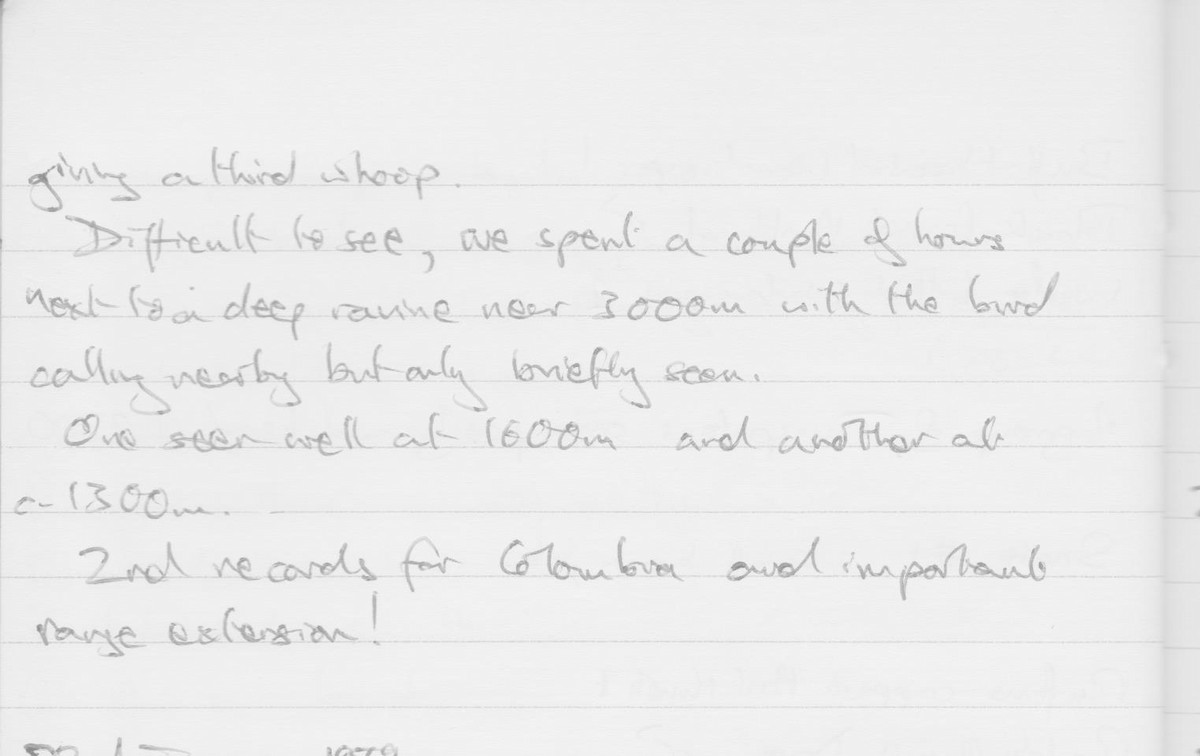 giving a third whoop.
Difficult to see, we spent a couple of hours
next to a deep ravine near 3000m with the bird
calling nearby but only briefly seen.
One seen well at 1600m and another at
c-1300m.
2nd records for Colombia and important
range extension!
1979